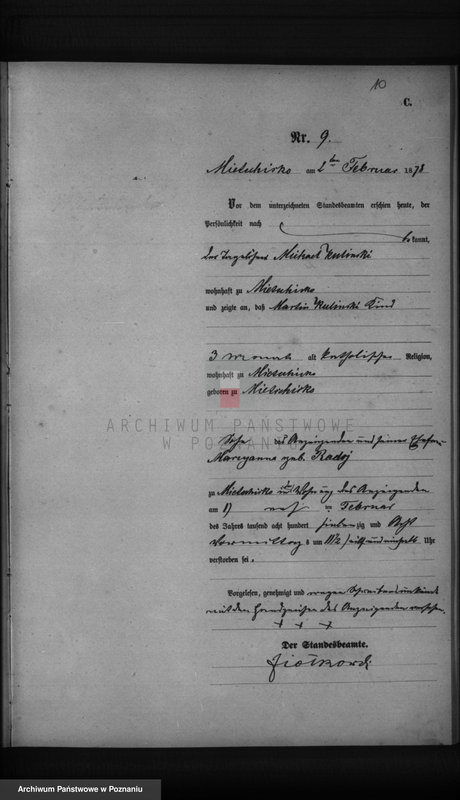 10
C.
Nr. 9.
Mietschisko am 2ten Februar 1878
Vor dem unterzeichneten Standesbeamten erschien heute, der
Persönlichkeit nach
bekannt,
der Tagelöhner Michael Kulinski
wohnhaft zu Mietschisko
und zeigte an, daß Martin Kulinski Kind
3 Monat alt katholischer Religion,
wohnhaft zu Mietschisko
geboren zu Mietschisko
Sohn des Anzeigenden und seiner Ehefrau
Maryanna geb. Radoj
zu Mietschisko in der Wohnung des Anzeigenden
am Februar
des Jahres tausend acht hundert siebenzig und acht
Vormittags um 11 1/2 Uhr
verstorben sei.
Vorgelesen, genehmigt und wegen Schreibensunkunde
mit den Handzeichen des Anzeigenden versehen.
+ + +
Der Standesbeamte.
ARCHIWUM PAŃSTWOWE
W POZNANIU
Archiwum Państwowe w Poznaniu